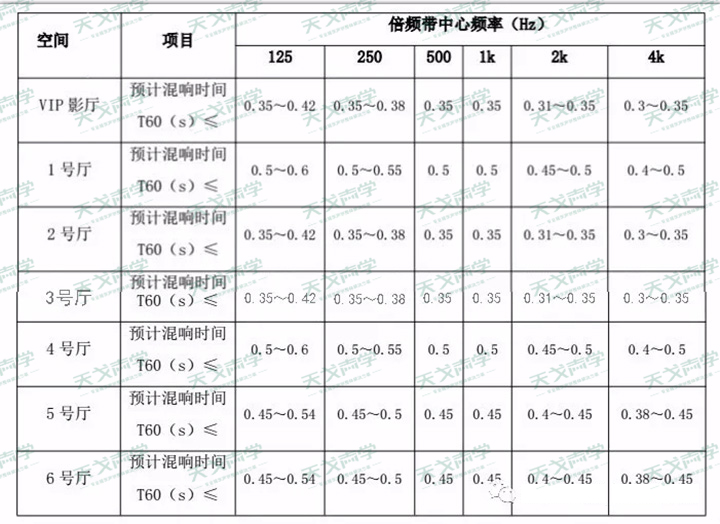 空间 项目 倍频带中心频率（Hz）
125 250 500 1k 2k 4k
VIP 影厅 预计混响时间 T60（s）≤ 0.35～0.42 0.35～0.38 0.35 0.35 0.31～0.35 0.3～0.35
1 号厅 预计混响时间 T60（s）≤ 0.5～0.6 0.5～0.55 0.5 0.5 0.45～0.5 0.4～0.5
2 号厅 预计混响时间 T60（s）≤ 0.35～0.42 0.35～0.38 0.35 0.35 0.31～0.35 0.3～0.35
3 号厅 预计混响时间 T60（s）≤ 0.35～0.42 0.35～0.38 0.35 0.35 0.31～0.35 0.3～0.35
4 号厅 预计混响时间 T60（s）≤ 0.5～0.6 0.5～0.55 0.5 0.5 0.45～0.5 0.4～0.5
5 号厅 预计混响时间 T60（s）≤ 0.45～0.54 0.45～0.5 0.45 0.45 0.4～0.45 0.38～0.45
6 号厅 预计混响时间 T60（s）≤ 0.45～0.54 0.45～0.5 0.45 0.45 0.4～0.45 0.38～0.45
天戈声学